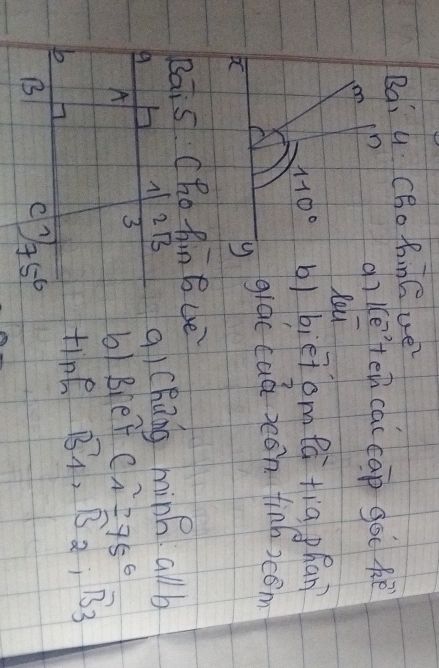 Bài 4. Cho hình vẽ
a) Kể tên các cặp góc kề
bù
b) biết om là tia phân
giác của xôn tính xôm
m
n
110°
x
y
Bài 5: Cho hình vẽ
a) Chứng minh: a//b
b) Biết C1 = 75°
tính B1, B2, B3
a
A
1
2
B
3
b
B
C
1
75°